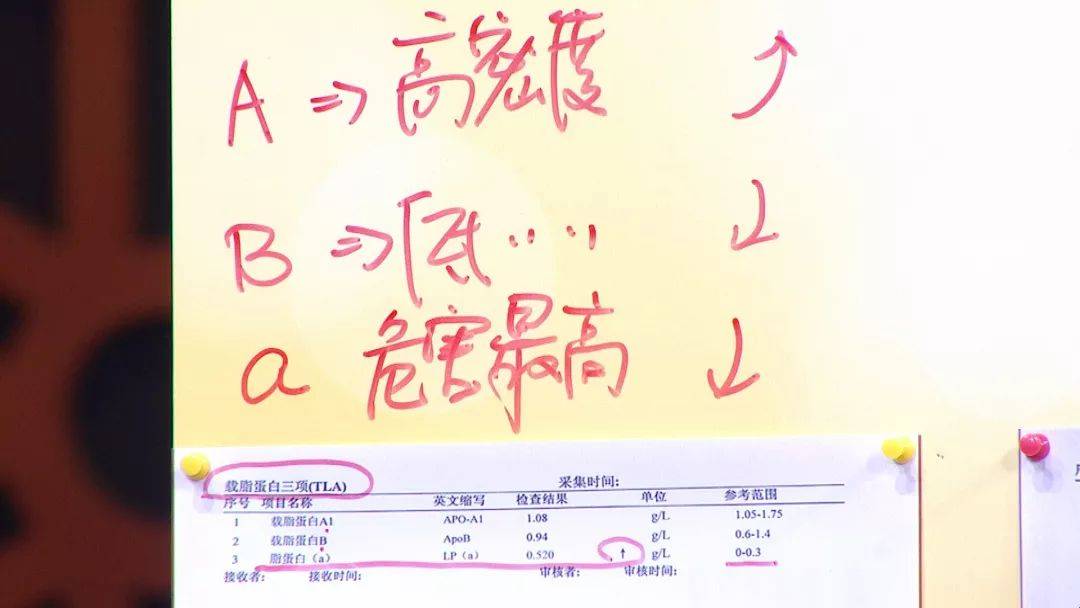 A ⇒ 高密度 ↑
B ⇒ 低····· ↓
a 危害最高 ↓
载脂蛋白三项(TLA) 采集时间:
序号 项目名称 英文缩写 检查结果 单位 参考范围
1 载脂蛋白A1 APO-A1 1.08 g/L 1.05-1.75
2 载脂蛋白B ApoB 0.94 g/L 0.6-1.4
3 脂蛋白（a） LP（a） 0.520 ↑ g/L 0-0.3
接收者: 接收时间: 审核者: 审核时间: